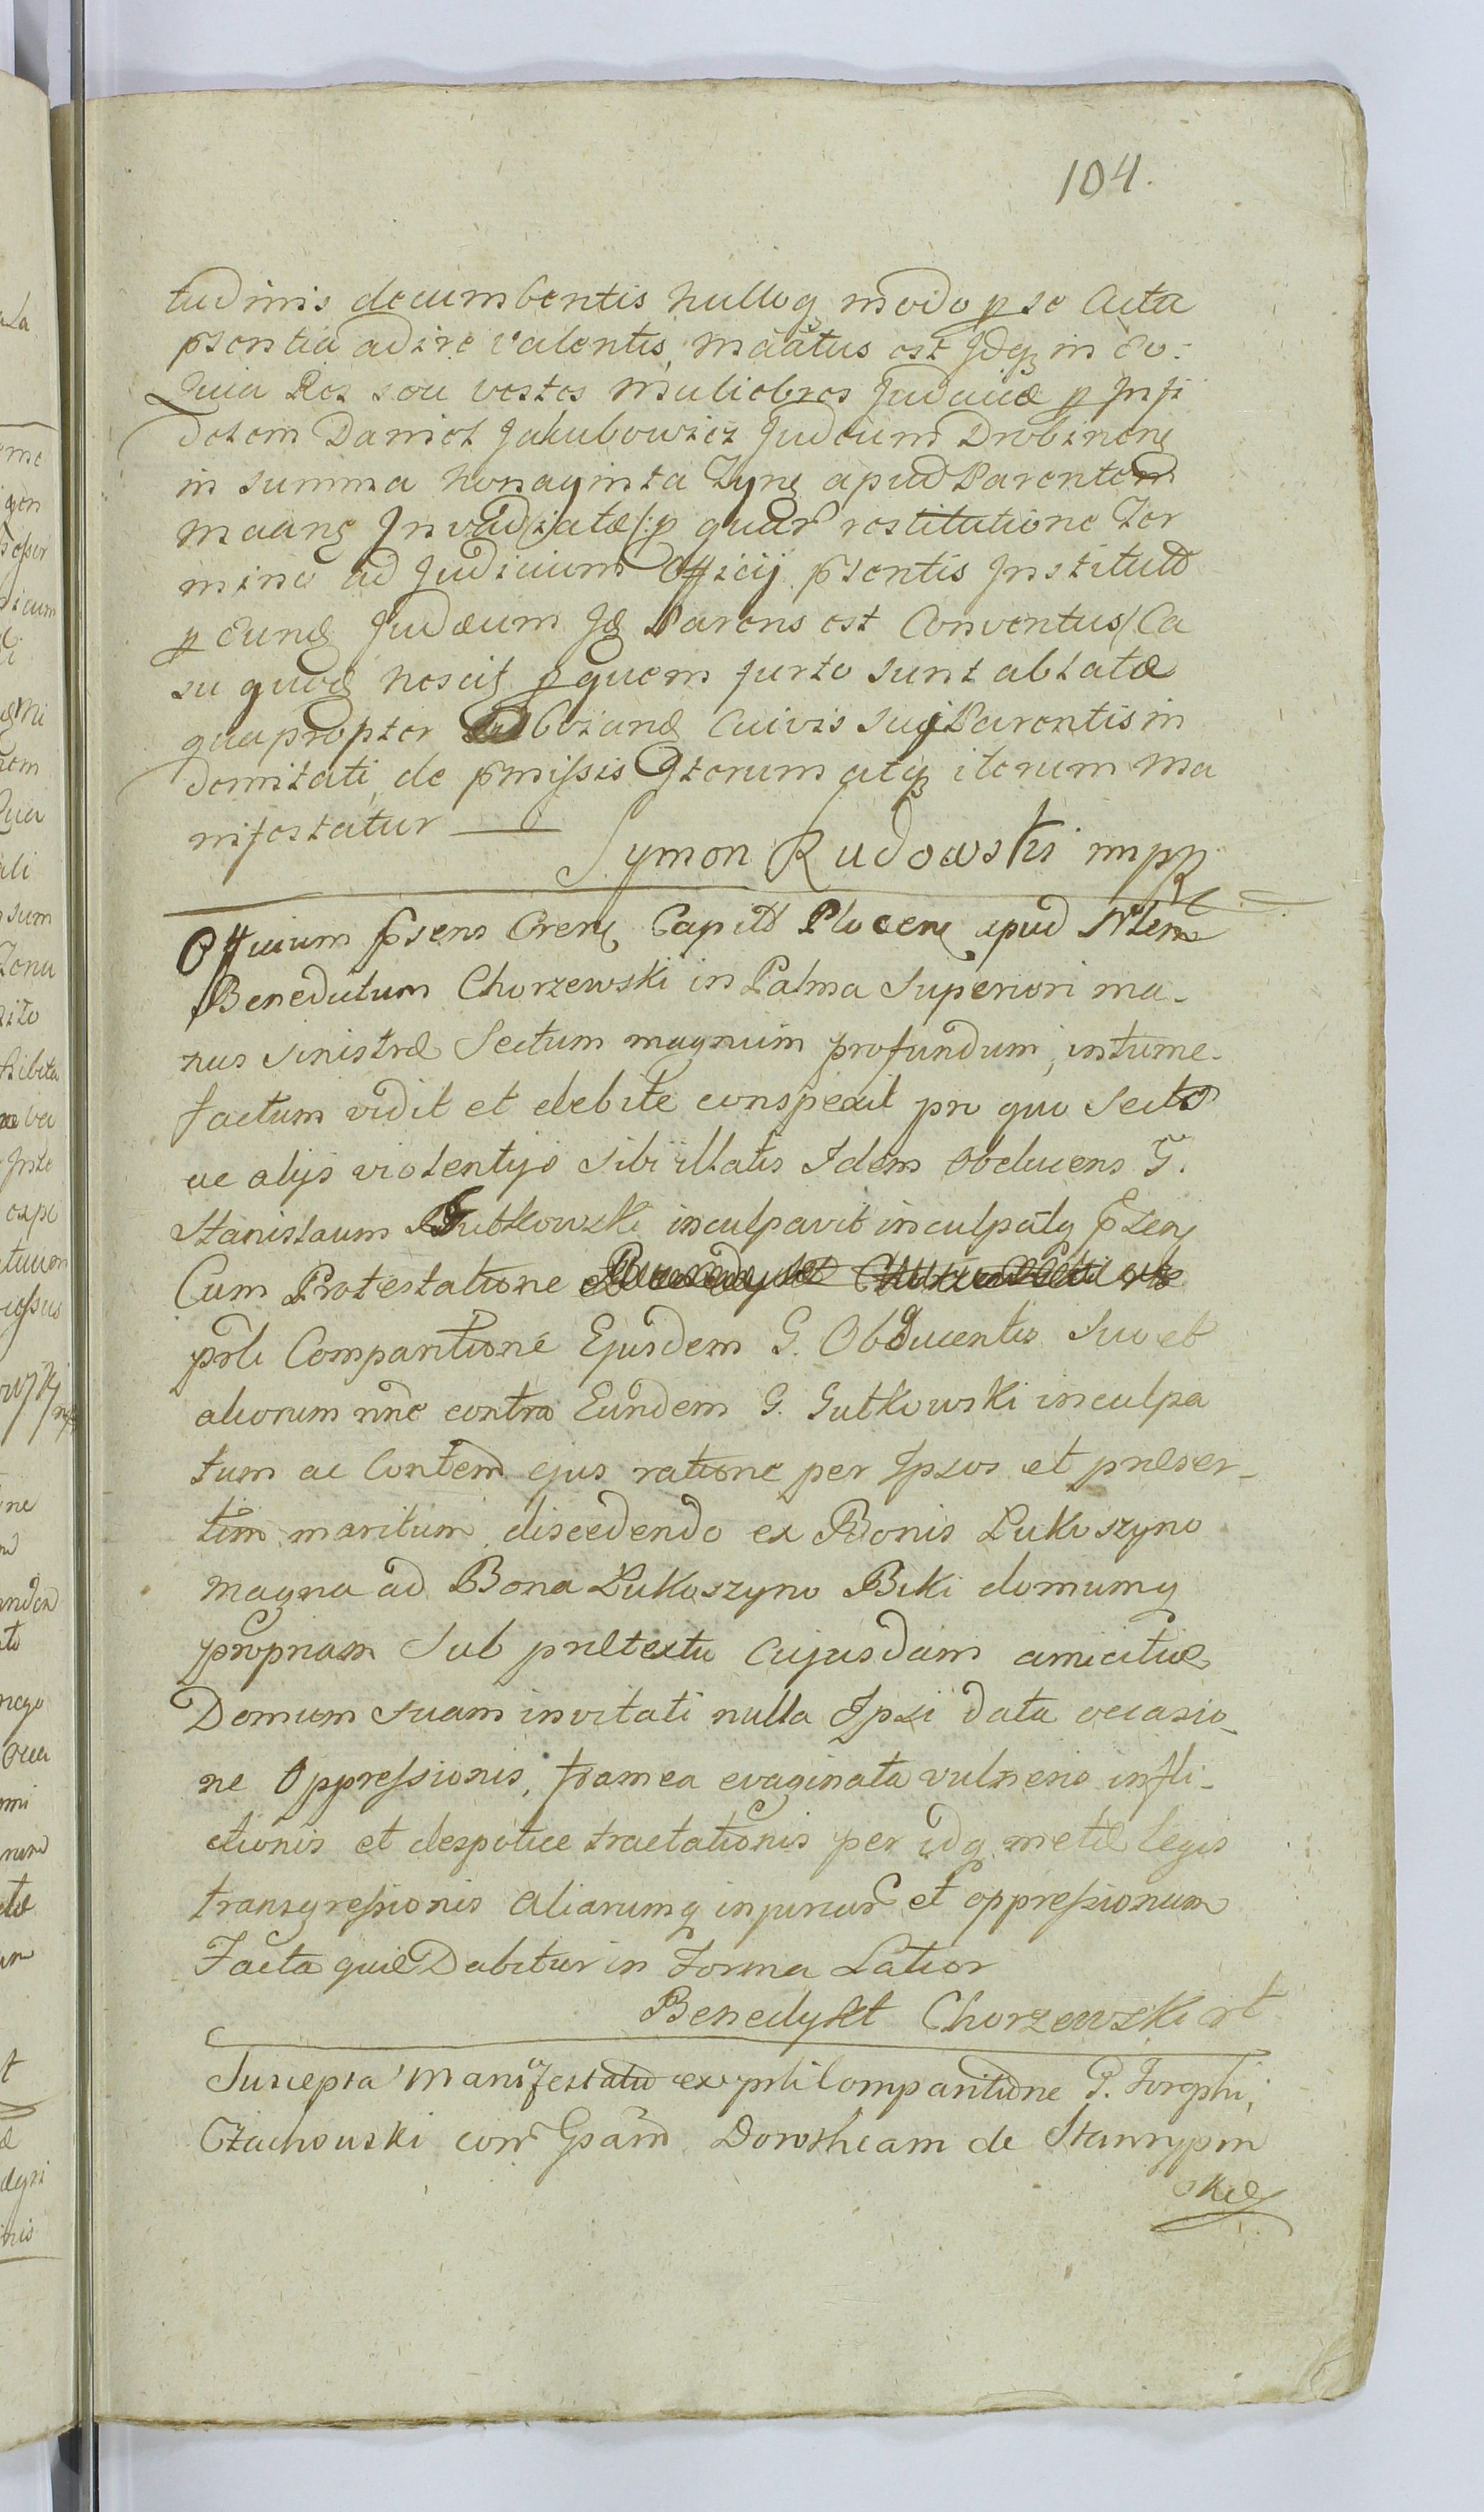 104.
tudinis decumbentis nulloq modo p se Acta
psentia adire valentis, maatus est Idq in Eo:
Quia Res seu vestes muliebres Judaicæ p Infi
delem Daniel Jakubowicz Judæum Drobinens
in summa nonaginta Tyns apud Parentem
maang Invadiatæ /: p quar restitutione Ter
mino ad Judicium Officij psentis Institutd
p Eund Judæum Id Parens est Conventus / Ca
su quod nescit p quem furto sunt ablatæ
quapropter cuivis sui Parentis in
demnitati, de pmissis Iterum atq iterum ma
nifestatur
Symon Rudowski mpp
Officium psens Crens Capitl Plocens apud Nlem
Benedictum Chorzewski in Palma Superiori ma-
nus sinistræ Sectum magnum profundum, intume-
factum vidit et debite conspexit pro quo Secto
ac alijs violentijs sibi illatis Idem Obducens G.
Stanislaum Gutkowski inculpavit inculpatq pzens
Cum Protestatione
prli Comparitione Ejusdem G. Obducentis Suo et
aliorum nne contra Eundem G. Gutkowski inculpa
tum ac Contem ejus ratione per Ipsos et præser-
tim maritum discedendo ex Bonis Lukoszyno
magna ad Bona Lukoszyno Biki domumq
propriam Sub prætextu Cujusdam amicitiæ
Domum suam invitati nulla Ipsi data occasio-
ne Oppressionis, framea evaginata vulneris infli-
ctionis et despotice tractationis per idq metæ legis
transgressionis aliarumq injuriar et oppressionum
Facta quæ Dabitur in Forma Latior
Benedykt Chorzewski
Suscepta Manifestatio ex prli Comparitione G.
Czachowski con Gsam Dorotheam de
skie